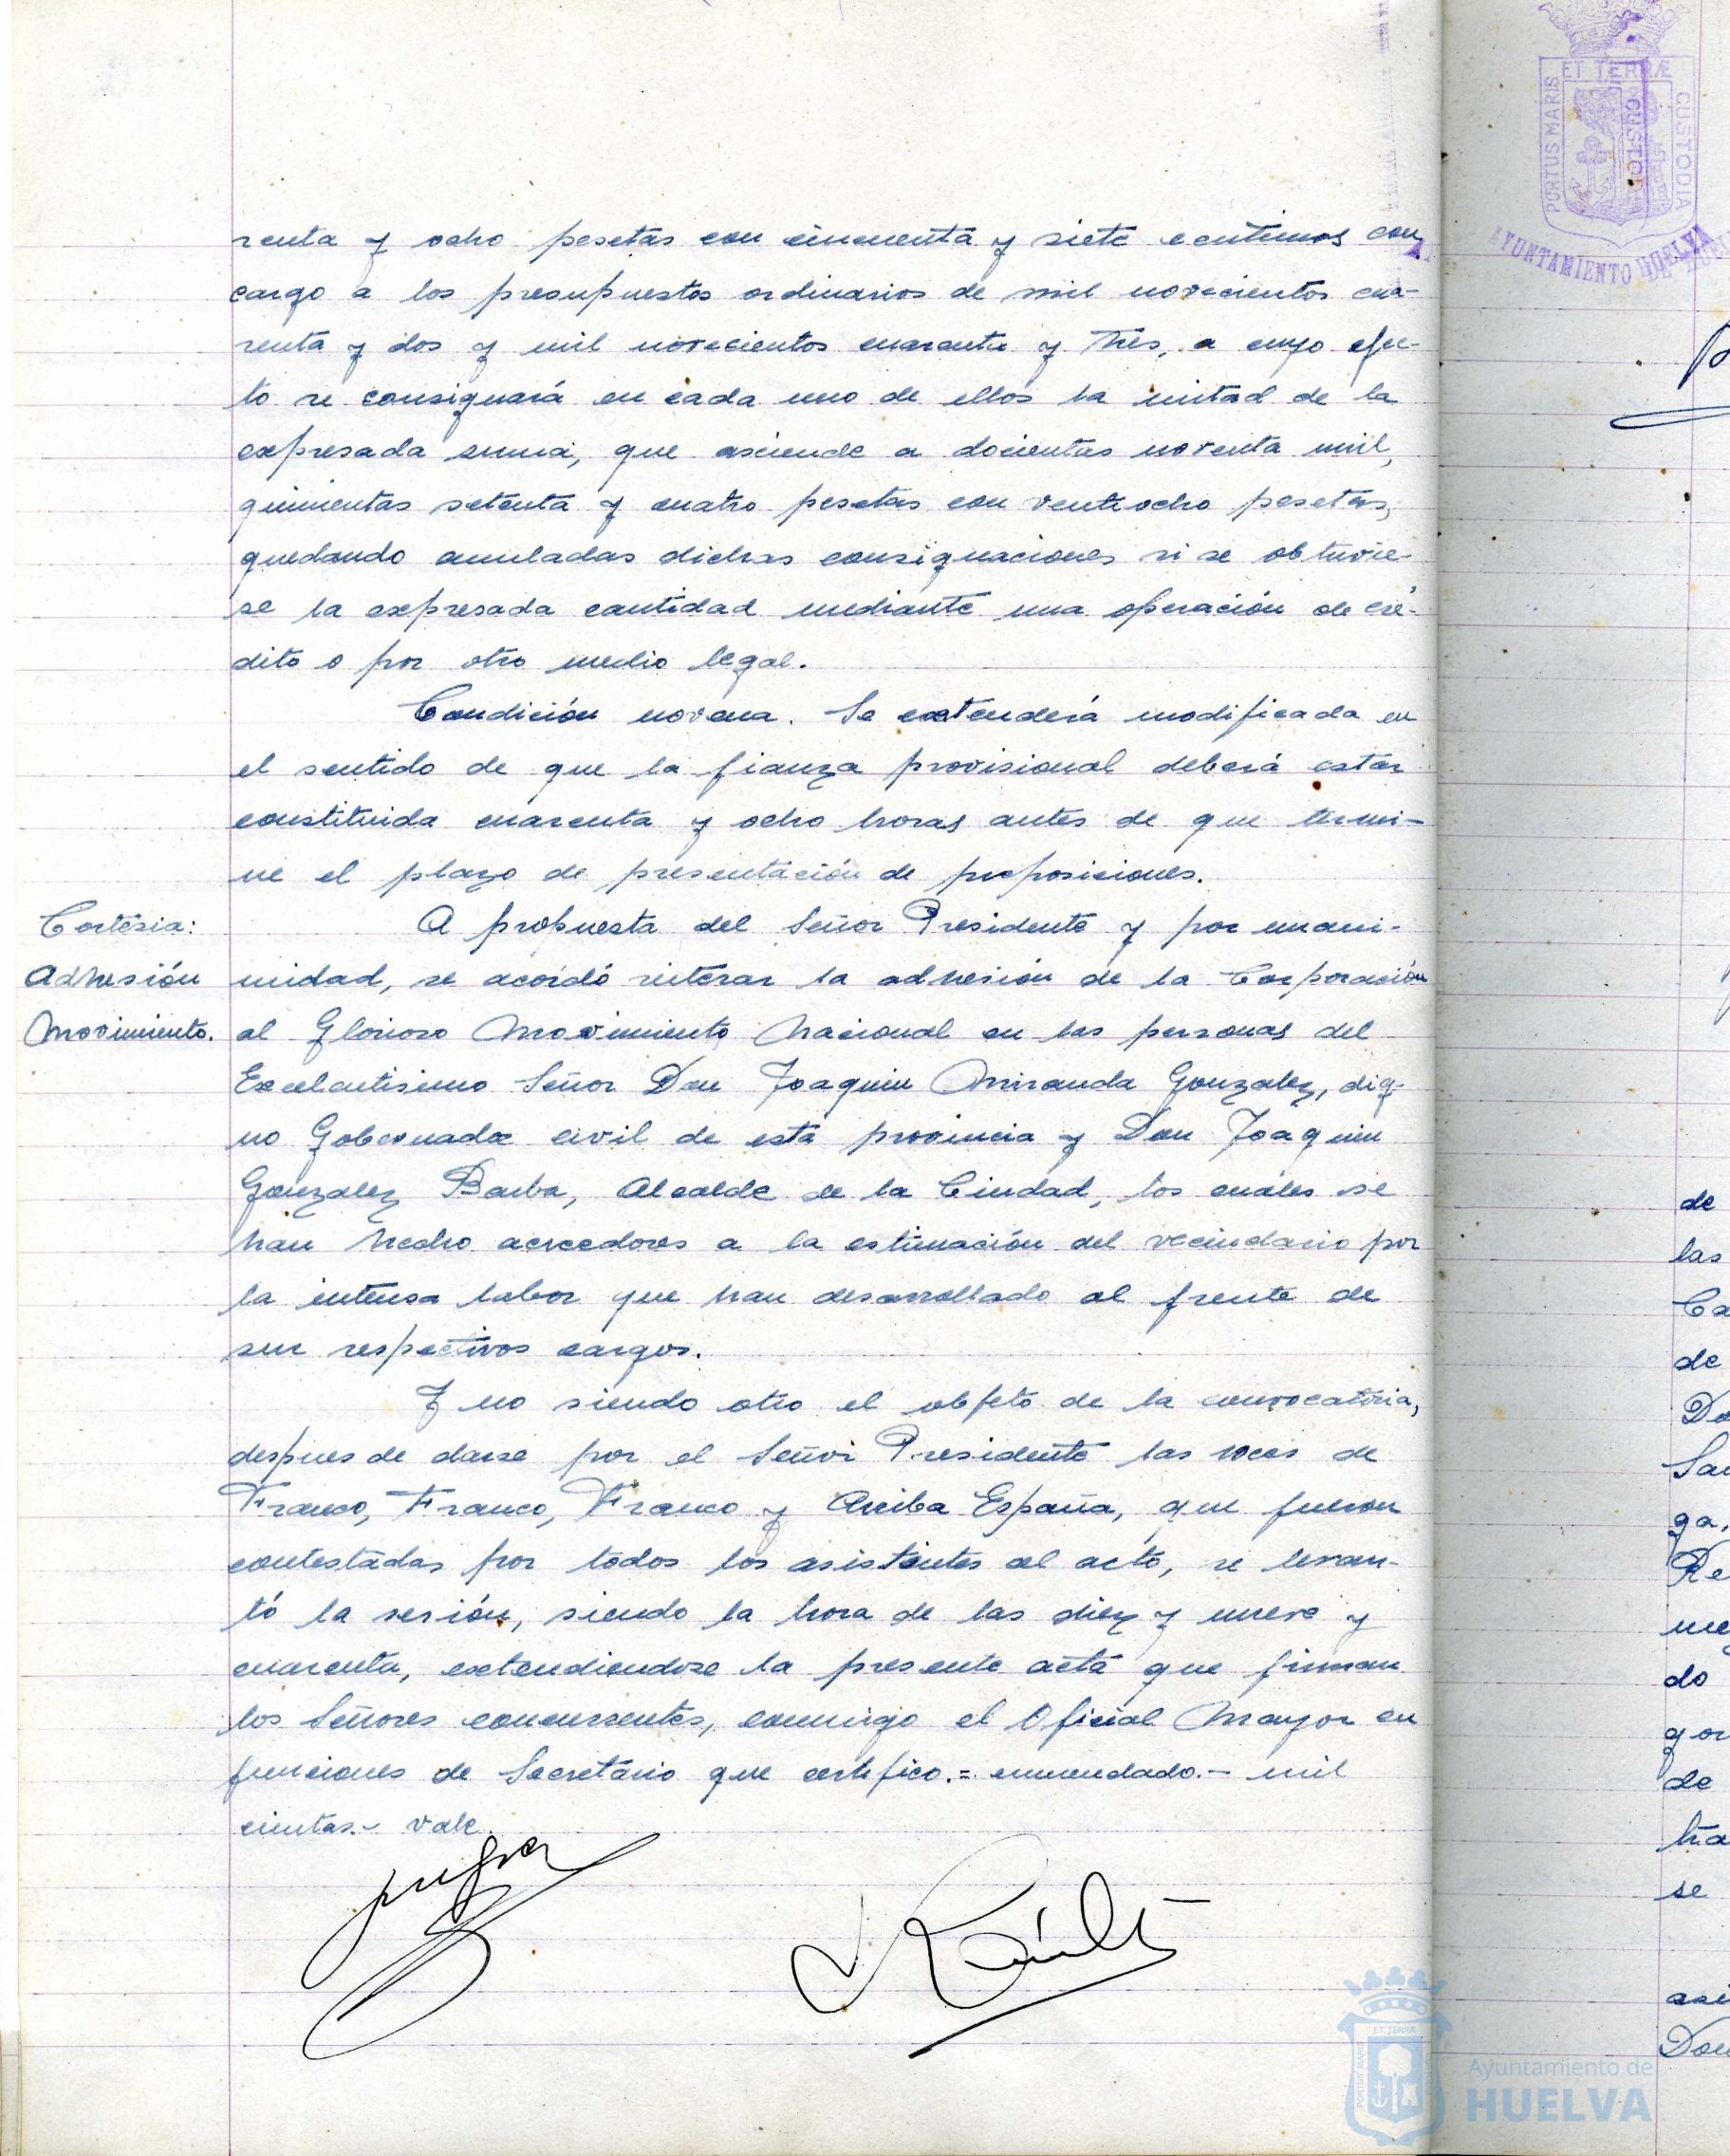 renta y ocho pesetas con cincuenta y siete centimos con
cargo a los presupuestos ordinarios de mil novecientos cua-
renta y dos y mil novecientos cuarenta y tres, a cuyo efec-
to se consignará en cada uno de ellos la mitad de la
expresada suma, que asciende a docientas noventa mil,
quinientas setenta y cuatro pesetas con ventiocho pesetas,
quedando anuladas dichas consignaciones si se obtuvie-
se la expresada cantidad mediante una operación de cré-
dito o por otro medio legal.
Condición novena. Se extenderá modificada en
el sentido de que la fianza provisional deberá estar
constituida cuarenta y ocho horas antes de que termi-
ne el plazo de presentación de proposiciones.
Cortesia:
Adhesión
Movimiento.
A propuesta del Señor Presidente y por unani-
midad, se acordó reiterar la adhesión de la Corporación
al Glorioso Movimiento Nacional en las personas del
Excelentisimo Señor Don Joaquin Miranda Gonzalez, dig-
no Gobernador civil de esta provincia y Don Joaquin
Gonzalez Barba, Alcalde de la Ciudad, los cuáles se
han hecho acreedores a la estimación del vecindario por
la intensa labor que han desarrollado al frente de
sus respectivos cargos.
Y no siendo otro el objeto de la convocatoria,
despues de darse por el Señor Presidente las voces de
Franco, Franco, Franco y Arriba España, que fueron
contestadas por todos los asistentes al acto, se levan-
tó la sesión, siendo la hora de las diez y nueve y
cuarenta, extendiendose la presente acta que firman
los Señores concurrentes, conmigo el Oficial Mayor en
funciones de Secretario que certifico.= enmendado.- mil
cientas.- vale.
PORTUS MARIS ET TERRÆ CUSTODIA
AYUNTAMIENTO HUELVA
de
las
Ca
de
Do
San
ga,
Re
me
do
gor
de
tra
se
asi
Don
Ayuntamiento de
HUELVA